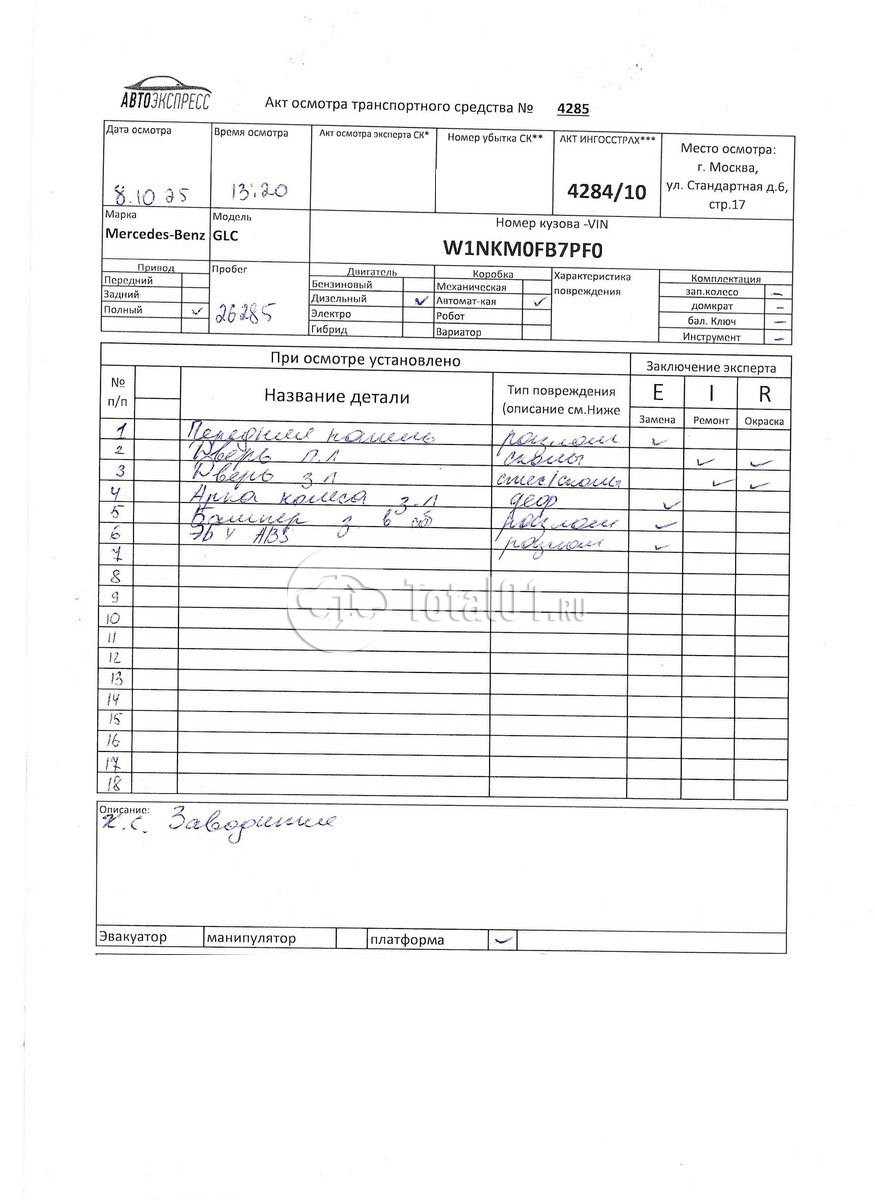 АВТОЭКСПРЕСС
Акт осмотра транспортного средства № 4285
Дата осмотра
Время осмотра
Акт осмотра эксперта СК*
Номер убытка СК**
АКТ ИНГОССТРАХ***
Место осмотра:
г. Москва,
ул. Стандартная д.6,
стр.17
8.10 25
13:20
4284/10
Марка
Модель
Номер кузова -VIN
Mercedes-Benz
GLC
W1NKM0FB7PF0
Привод
Пробег
Двигатель
Коробка
Характеристика
повреждения
Комплектация
Передний
Бензиновый
Механическая
зап.колесо –
Задний
Дизельный ✓
Автомат-кая ✓
домкрат –
Полный ✓
26285
Электро
Робот
бал. Ключ –
Гибрид
Вариатор
Инструмент –
При осмотре установлено
Заключение эксперта
№
п/п
Название детали
Тип повреждения
(описание см.Ниже
E I R
Замена Ремонт Окраска
1 Передняя панель разлом ✓
2 Дверь п.л сколы ✓ ✓
3 Дверь з л /сколы ✓ ✓
4 Арка колеса з.л деф ✓
5 Бампер з в сб разлом ✓
6 ЭБУ ABS разлом ✓
7
8
9
10
11
12
13
14
15
16
17
18
Total01.RU
Описание:
х.с.
Эвакуатор манипулятор платформа ✓